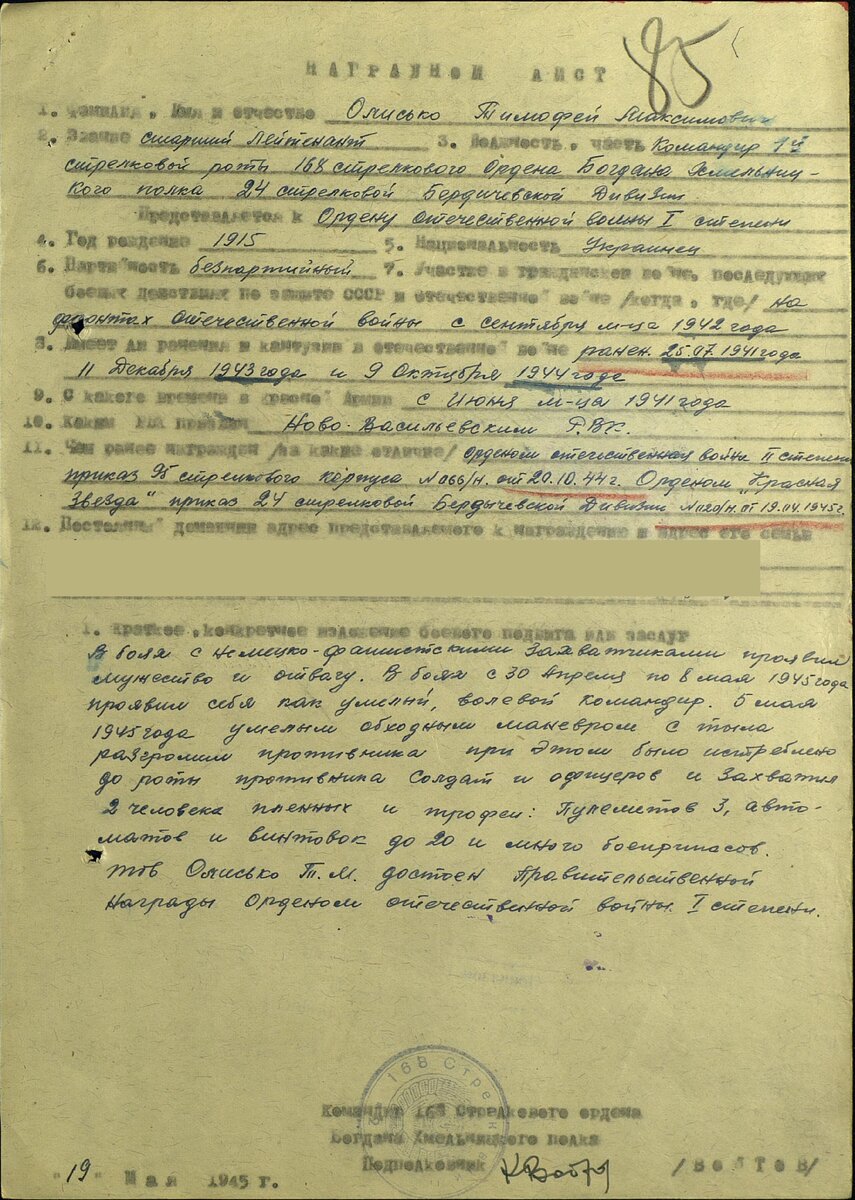 85
НАГРАДНОЙ ЛИСТ
1. Фамилия, Имя и отчество Олисько Тимофей Максимович
2. Звание старший Лейтенант 3. Должность, часть Командир 1й
стрелковой роты 168 стрелкового Ордена Богдана Хмельниц-
кого полка 24 стрелковой Бердичевской Дивизии
Представляется к Ордену отечественной войны I степени
4. Год рождения 1915 5. Национальность Украинец
6. Партийность безпартийный 7. Участие в гражданской войне, последующих
боевых действиях по защите СССР и отечественной войне /когда, где/ на
фронтах отечественной войны с сентября м-ца 1942 года
8. Имеет ли ранения и контузии в отечественной войне ранен. 25.07.1941 года
11 Декабря 1943 года и 9 Октября 1944 года
9. С какого времени в Красной Армии с Июня м-ца 1941 года
10. Каким РВК призван Ново-Васильевским Р.В.К.
11. Чем ранее награжден /за какие отличия/ орденом отечественная войны II степени
приказ 95 стрелкового корпуса N066/н. от 20.10.44 г. Орденом „Красная
Звезда" приказ 24 стрелковой Бердычевской Дивизии N020/н. от 19.04.1945 г.
12. Постоянный домашний адрес представляемого к награждению и адрес его семьи
1. Краткое, конкретное изложение боевого подвига или заслуг
В боях с немецко-фашистскими захватчиками проявил
мужество и отвагу. В боях с 30 Апреля по 8 мая 1945 года
проявил себя как умелый, волевой командир. 5 мая
1945 года умелым обходным маневром с тыла
разгромил противника при этом было истреблено
до роты противника солдат и офицеров и захватил
2 человека пленных и трофеи: Пулеметов 3, авто-
матов и винтовок до 20 и много боеприпасов.
тов Олисько Т.М. достоен Правительственной
Награды Орденом отечественной войны I степени.
168 Стрелк
Командир 168 Стрелкового ордена
Богдана Хмельницкого полка
Подполковник /ВОЙТОВ/
"19" Мая 1945 г.